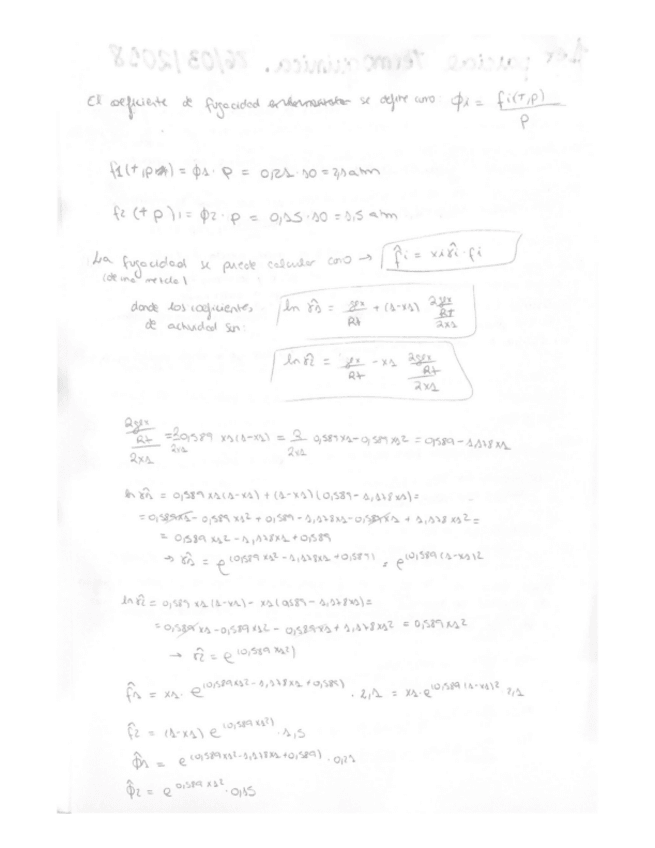 1er parcial termoquímica. 16/03/2018
El coeficiente de fugacidad se define como: ϕi = fi(T,P) / P
f1(T,P) = ϕ1 · P = 0,21 · 10 = 2,1 atm
f2(T,P) = ϕ2 · P = 0,15 · 10 = 1,5 atm
La fugacidad se puede calcular como → f̂i = xi γ̂i · fi
(de una mezcla)
donde los coeficientes de actividad son:
ln γ̂1 = gex/RT + (1-x1) ∂(gex/RT)/∂x1
ln γ̂2 = gex/RT - x1 ∂(gex/RT)/∂x1
∂(gex/RT)/∂x1 = ∂/∂x1 0,589 x1(1-x1) = ∂/∂x1 0,589x1 - 0,589x1² = 0,589 - 1,178x1
ln γ̂1 = 0,589 x1(1-x1) + (1-x1)(0,589 - 1,178x1) =
= 0,589x1 - 0,589x1² + 0,589 - 1,178x1 - 0,589x1 + 1,178x1² =
= 0,589x1² - 1,178x1 + 0,589
→ γ̂1 = e^(0,589x1² - 1,178x1 + 0,589) = e^(0,589(1-x1)²
ln γ̂2 = 0,589 x1(1-x1) - x1(0,589 - 1,178x1) =
= 0,589x1 - 0,589x1² - 0,589x1 + 1,178x1² = 0,589x1²
→ γ̂2 = e^(0,589x1²)
f̂1 = x1 · e^(0,589x1² - 1,178x1 + 0,589) · 2,1 = x1 · e^(0,589(1-x1)² 2,1
f̂2 = (1-x1) e^(0,589x1²) · 1,5
ϕ̂1 = e^(0,589x1² - 1,178x1 + 0,589) · 0,21
ϕ̂2 = e^0,589x1² · 0,15